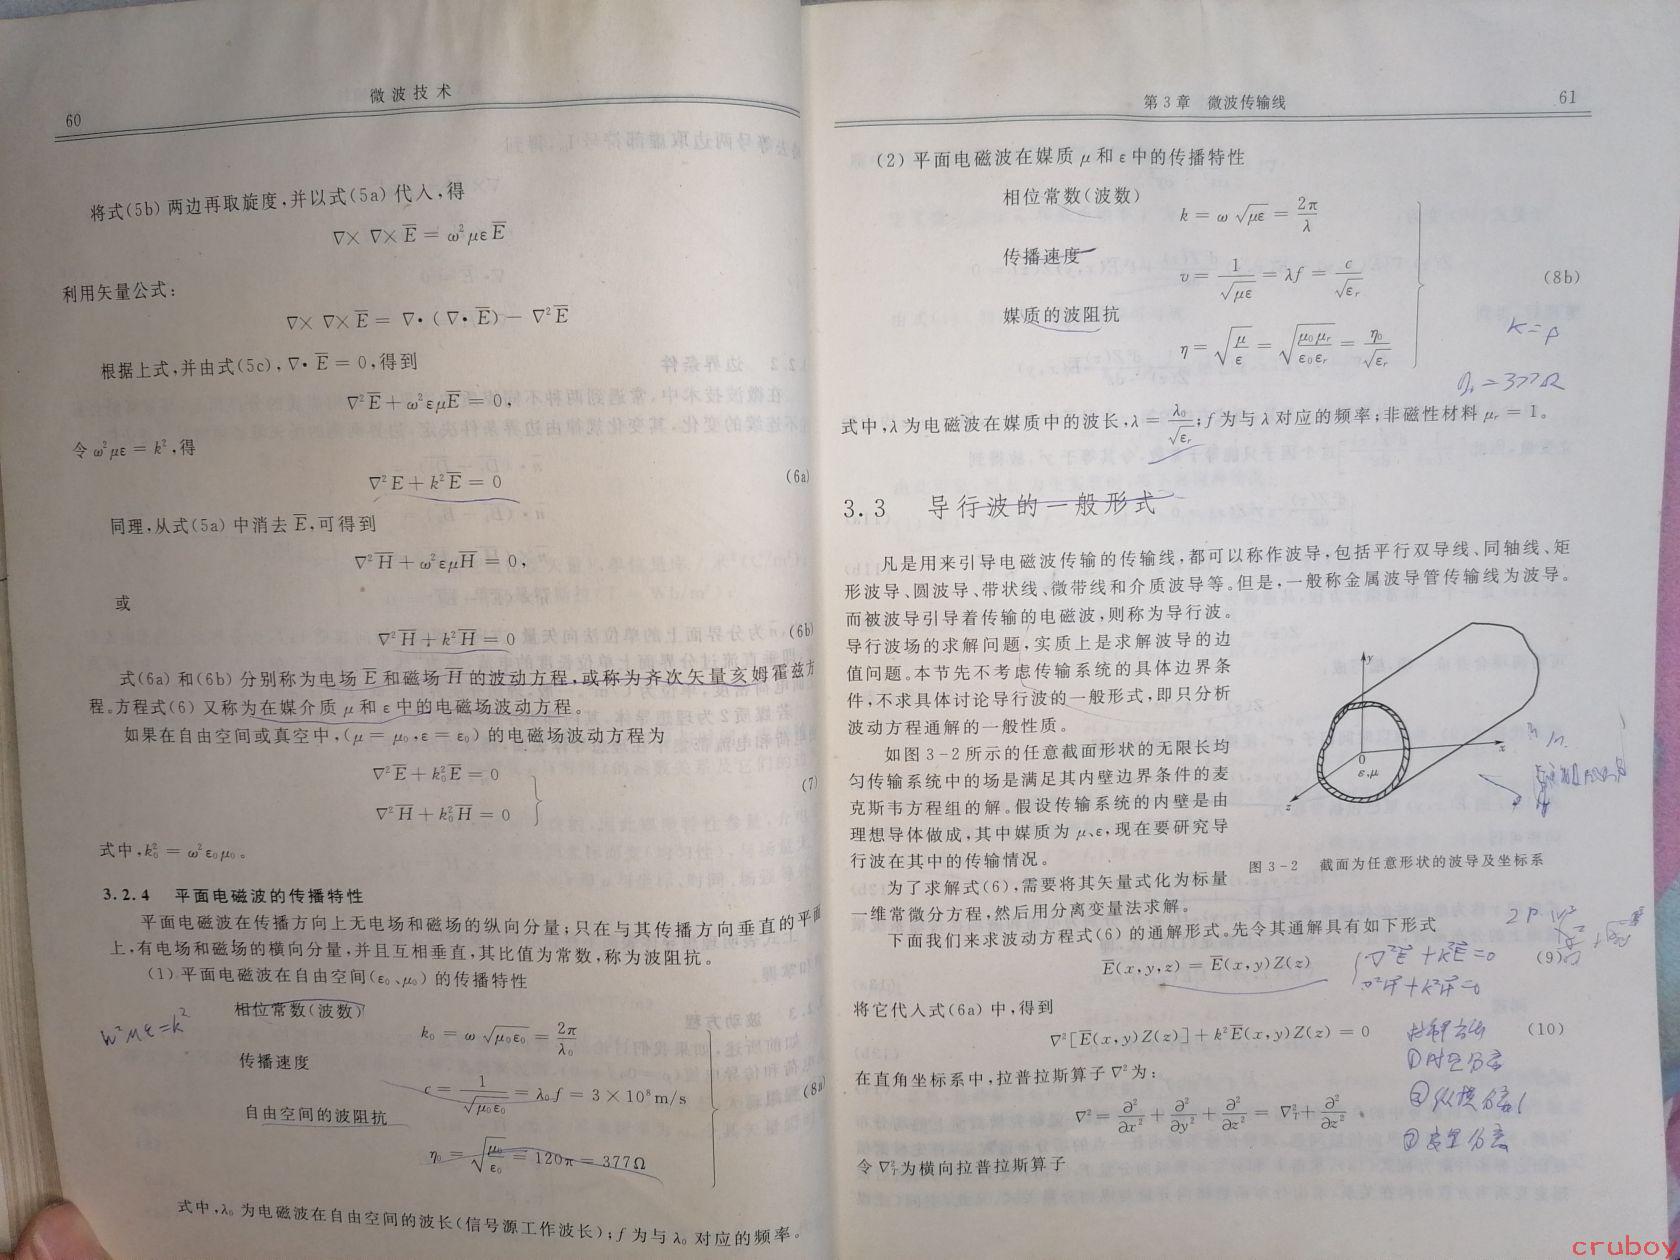 60
微波技术
将式(5b)两边再取旋度,并以式(5a)代入,得
∇×∇×E̅ = ω²μεE̅
利用矢量公式:
∇×∇×E̅ = ∇·(∇·E̅) − ∇²E̅
根据上式,并由式(5c),∇·E̅ = 0,得到
∇²E̅ + ω²εμE̅ = 0,
令 ω²με = k²,得
∇²E + k²E̅ = 0 (6a)
同理,从式(5a)中消去 E̅,可得到
∇²H̅ + ω²εμH̅ = 0,
或
∇²H̅ + k²H̅ = 0 (6b)
式(6a)和(6b)分别称为电场 E̅ 和磁场 H̅ 的波动方程,或称为齐次矢量亥姆霍兹方
程。方程式(6)又称为在媒介质 μ 和 ε 中的电磁场波动方程。
如果在自由空间或真空中,(μ = μ₀,ε = ε₀)的电磁场波动方程为
∇²E̅ + k₀²E̅ = 0
∇²H̅ + k₀²H̅ = 0
(7)
式中,k₀² = ω²ε₀μ₀。
3.2.4 平面电磁波的传播特性
平面电磁波在传播方向上无电场和磁场的纵向分量;只在与其传播方向垂直的平面
上,有电场和磁场的横向分量,并且互相垂直,其比值为常数,称为波阻抗。
(1)平面电磁波在自由空间(ε₀、μ₀)的传播特性
相位常数(波数)
k₀ = ω√μ₀ε₀ = 2π/λ₀
w²με=k²
传播速度
c = 1/√μ₀ε₀ = λ₀f = 3×10⁸m/s (8a)
自由空间的波阻抗
η₀ = √(μ₀/ε₀) = 120π = 377Ω
式中,λ₀ 为电磁波在自由空间的波长(信号源工作波长);f 为与 λ₀ 对应的频率。
第3章 微波传输线
61
(2)平面电磁波在媒质 μ 和 ε 中的传播特性
相位常数(波数)
k = ω√με = 2π/λ
传播速度
v = 1/√με = λf = c/√εᵣ (8b)
媒质的波阻抗
η = √(μ/ε) = √(μ₀μᵣ/ε₀εᵣ) = η₀/√εᵣ
K=β
η₀=377Ω
式中,λ 为电磁波在媒质中的波长,λ = λ₀/√εᵣ;f 为与 λ 对应的频率;非磁性材料 μᵣ = 1。
3.3 导行波的一般形式
凡是用来引导电磁波传输的传输线,都可以称作波导,包括平行双导线、同轴线、矩
形波导、圆波导、带状线、微带线和介质波导等。但是,一般称金属波导管传输线为波导。
而被波导引导着传输的电磁波,则称为导行波。
导行波场的求解问题,实质上是求解波导的边
值问题。本节先不考虑传输系统的具体边界条
件,不求具体讨论导行波的一般形式,即只分析
波动方程通解的一般性质。
如图3-2所示的任意截面形状的无限长均
匀传输系统中的场是满足其内壁边界条件的麦
克斯韦方程组的解。假设传输系统的内壁是由
理想导体做成,其中媒质为 μ、ε,现在要研究导
行波在其中的传输情况。
y
x
0
ε,μ
z
图3-2 截面为任意形状的波导及坐标系
为了求解式(6),需要将其矢量式化为标量
一维常微分方程,然后用分离变量法求解。
下面我们来求波动方程式(6)的通解形式。先令其通解具有如下形式
E̅(x,y,z) = E̅(x,y)Z(z) (9)
∇²E̅+k²E̅=0
∇²H̅+k²H̅=0
将它代入式(6a)中,得到
∇²[E̅(x,y)Z(z)] + k²E̅(x,y)Z(z) = 0 (10)
在直角坐标系中,拉普拉斯算子 ∇² 为:
∇² = ∂²/∂x² + ∂²/∂y² + ∂²/∂z² = ∇²_T + ∂²/∂z²。
①时空分离
②纵横分离
令 ∇²_T 为横向拉普拉斯算子
cruboy